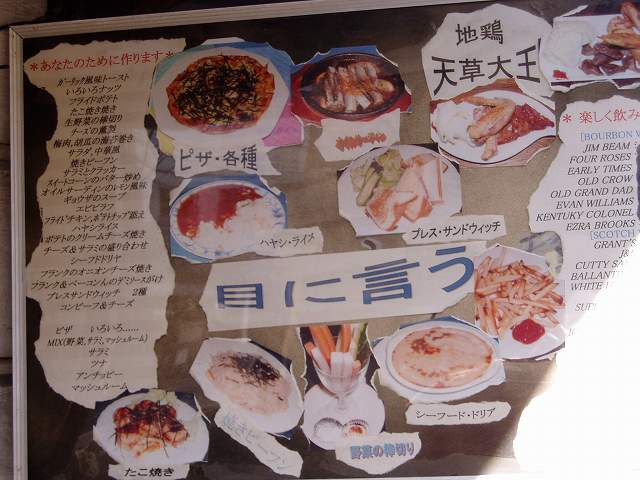 *あなたのために作ります*
ガーリック風味トースト
いろいろナッツ
フライドポテト
たこ焼き焼き
生野菜の棒切り
チーズの薫製
梅肉、胡瓜の海苔巻き
サラダ、中華風
焼きビーフン
サラミとクラッカー
スイートコーンのバター炒め
オイルサーディンのレモン風味
ギョウザのスープ
エビピラフ
フライドチキン、ポテトチップ添え
ハヤシライス
ポテトのクリームチーズ焼き
チーズ&サラミの盛り合わせ
シーフドリヤ
フランクのオニオンチーズ焼き
フランク&ベーコンんのデミソースがけ
プレスサンドウィッチ 2種
コンビーフ&チーズ
ピザ いろいろ......
MIX(野菜,サラミ,マッシュルーム)
サラミ
ツナ
アンチョビー
マッシュルーム
ピザ・各種
地鶏
天草大王
ハヤシ・ライス
プレス・サンドウィッチ
目に言う
たこ焼き
焼きビーフン
野菜の棒切り
シーフード・ドリア
* 楽しく飲み
[BOURBON
JIM BEAM
FOUR ROSES
EARLY TIMES
OLD CROW
OLD GRAND DAD
EVAN WILLIAMS
KENTUKY COLONEL
EZRA BROOKS
[SCOTCH
GRANT'S
J&
CUTTY SA
BALLANT
WHITE H
SUP